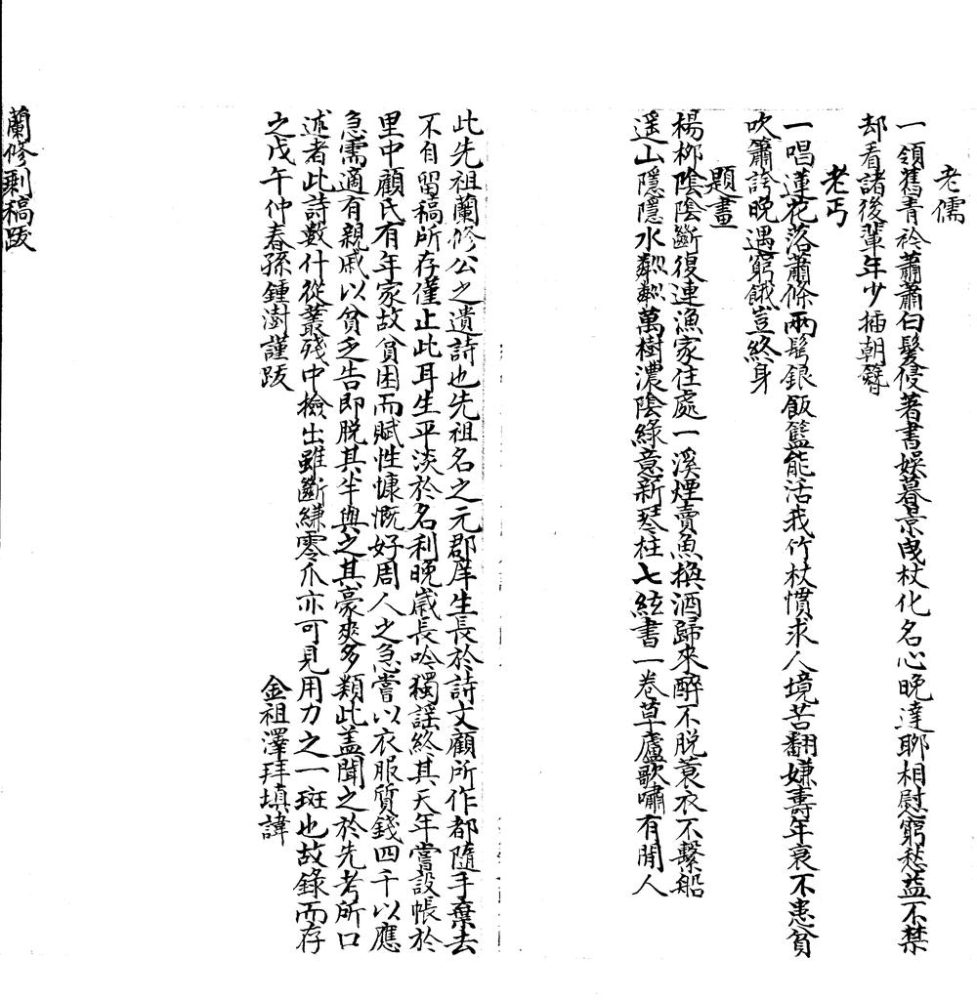 老儒
一領舊青衿蕭蕭白髮侵著書娛暮景曳杖化名心晚達聊相慰窮愁益不禁
却看諸後輩年少插朝簪
老丐
一唱蓮花落蕭條兩鬂銀飯籃能活我竹杖慣求人境苦翻嫌壽年衰不患貧
吹簫誇晚遇窮餓豈終身
題畫
楊栁陰陰斷復連漁家住處一溪煙賣魚換酒歸來醉不脫蓑衣不繫船
遥山隱隱水粼粼萬樹濃陰綠意新琴柱七絃書一卷草廬歌嘯有閒人
此先祖蘭修公之遺詩也先祖名之元郡庠生長於詩文顧所作都隨手棄去
不自留稿所存僅止此耳生平淡於名利晚歲長吟獨謡終其天年嘗設帳於
里中顧氏有年家故貧困而賦性慷慨好周人之急嘗以衣服質錢四千以應
急需適有親戚以貧乏告即脫其半與之其豪爽多類此蓋聞之於先考所口
述者此詩數什從叢殘中檢出雖斷縑零爪亦可見用力之一斑也故錄而存
之戊午仲春孫鍾澍謹跋
金祖澤拜填諱
蘭修剩稿跋